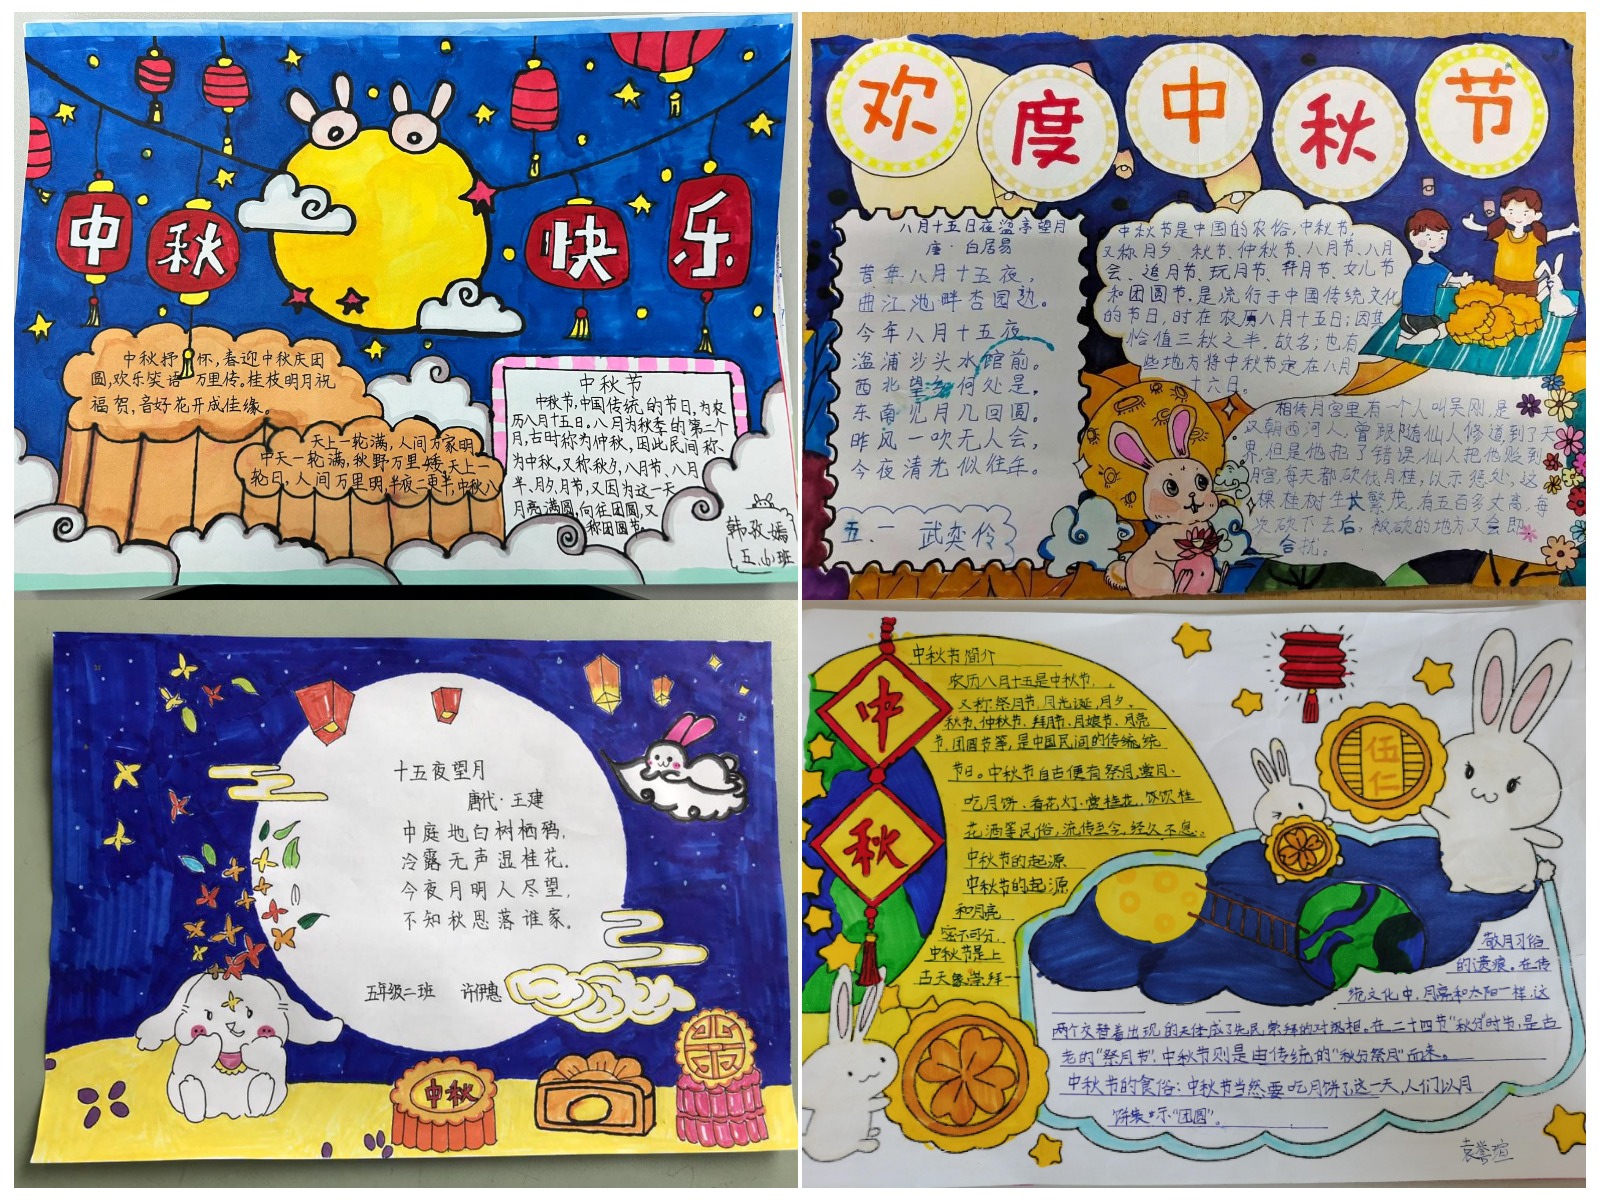 中秋快乐
中秋抒怀，春迎中秋庆团
圆，欢乐笑语万里传。桂枝明月祝
福贺，音好花开成佳缘。
天上一轮满，人间万家明
中天一轮满，秋野万里矮，天上一
轮日，人间万里明，半夜二更半，中秋八
中秋节
中秋节，中国传统的节日，为农
历八月十五日。八月为秋季的第二个
月，古时称为仲秋，因此民间称
为中秋，又称秋夕、八月节、八月
半、月夕、月节，又因为这一天
月亮满圆，向往团圆，又
称团圆节。
五.小班
欢度中秋节
八月十五日夜湓亭望月
唐·白居易
昔年八月十五夜，
曲江池畔杏园边。
今年八月十五夜
湓浦沙头水馆前。
西北望乡何处是，
东南见月几回圆。
昨风一吹无人会，
今夜清光似往年。
五.一 武奕伶
中秋节是中国的农俗，中秋节，
又称月夕、秋节、仲秋节、八月节、八月
会、追月节、玩月节、拜月节、女儿节
和团圆节，是流行于中国传统文化
的节日，时在农历八月十五日；因其
恰值三秋之半，故名；也有
些地方将中秋节定在八月
十六日。
相传月宫里有一个人叫吴刚，是
汉朝西河人，曾跟随仙人修道到了天
界，但是他犯了错误，仙人把他贬到
月宫，每天都砍伐月桂，以示惩处，这
棵桂树生长繁茂，有五百多丈高，每
次砍下去后，被砍的地方又会即
合拢。
十五夜望月
唐代·王建
中庭地白树栖鸦，
冷露无声湿桂花。
今夜月明人尽望，
不知秋思落谁家。
五年级二班 许伊惠
中秋
中秋
中秋节简介
农历八月十五是中秋节，
又称祭月节，月光诞，月夕、
秋节、仲秋节、拜月节、月娘节、月亮
节，团圆节等，是中国民间的传统统
节日。中秋节自古便有祭月、赏月、
吃月饼、看花灯、赏桂花，饮饮桂
花酒等民俗，流传至今，经久不息。
中秋节的起源
中秋节的起源
和月亮
密不可分，
中秋节是上
古天象崇拜一
伍仁
敬月习俗
的遗痕。在传
统文化中，月亮和太阳一样，这
两个交替着出现的天体成了先民崇拜的对象相。在二十四节“秋分”时节，是古
老的“祭月节”，中秋节则是由传统的“秋分祭月”而来。
中秋节的食俗：中秋节当然要吃月饼了这一天，人们以月
饼表示“团圆”。
袁誉瑄